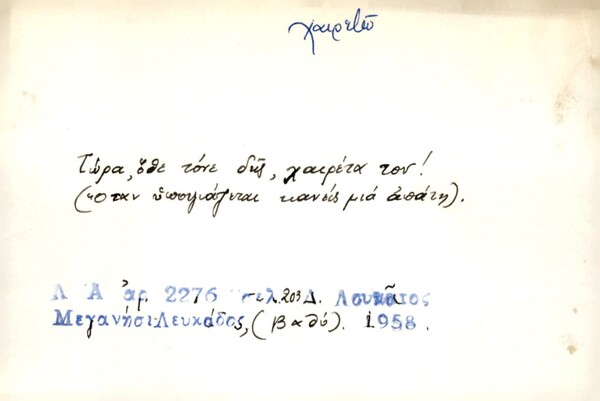 χαιρετῶ
Τώρα, ὅθε τόνε δῇς, χαιρέτα τον!
(Ὅταν ὑποψιάζεται κανείς μιά ἀπάτη).
Λ Α ἀρ. 2276 σελ. 203 Δ. Λουκᾶτος
Μεγανήσι Λευκάδος, (Βαθύ). 1958.